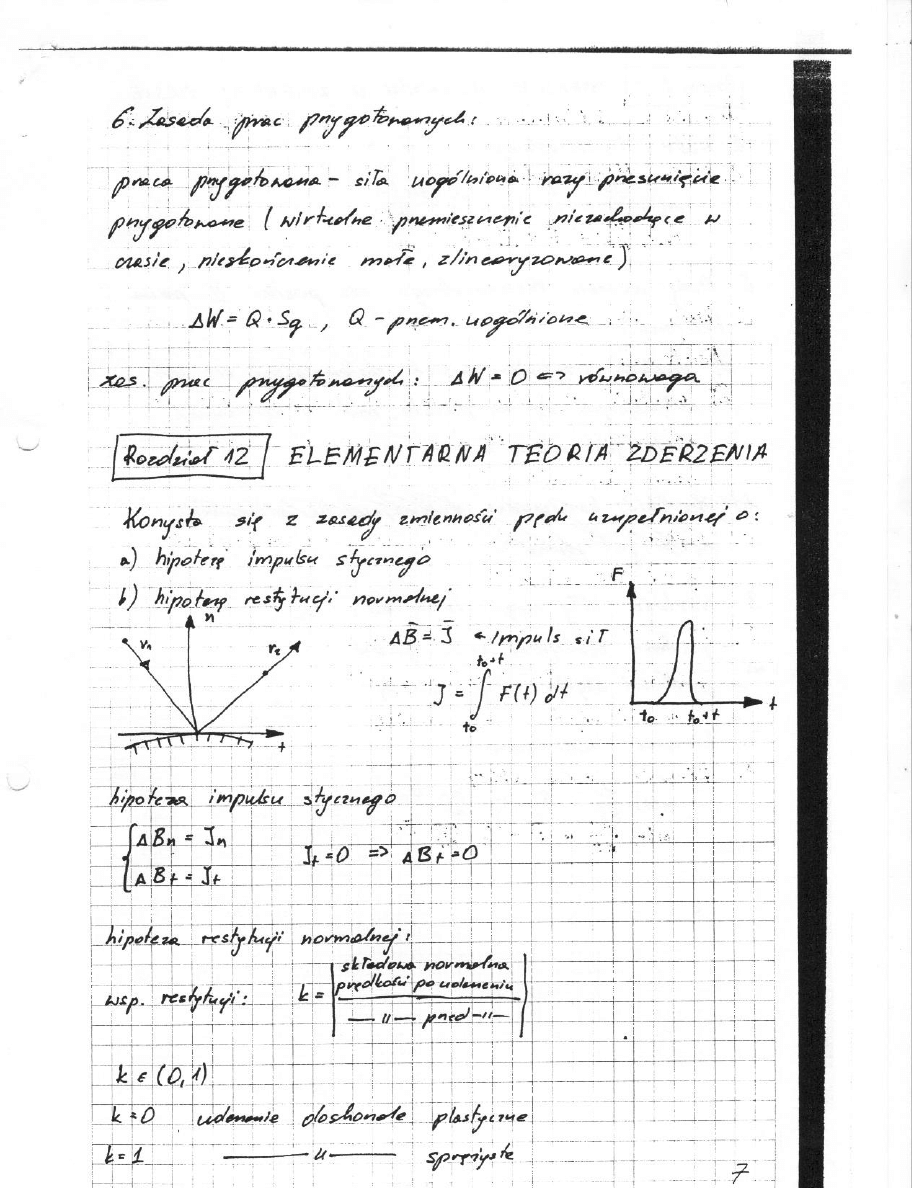 6. Zasada prac przygotowanych:
praca przygotowana - siła uogólniona razy przesunięcie
przygotowane (wirtualne przemieszczenie niezachodzące w
czasie, nieskończenie małe, zlinearyzowane)
ΔW = Q · Sq , Q - przem. uogólnione
zas. prac przygotowanych: ΔW = 0 <=> równowaga
Rozdział 12 ELEMENTARNA TEORIA ZDERZENIA
Korzysta się z zasady zmienności pędu uzupełnionej o:
a) hipotezę impulsu stycznego
b) hipotezę restytucji normalnej
n
v₁
v₂
t
ΔB̄ = J̄ ← impuls sił
J = ∫ F(t) dt
t₀+t
t₀
F
t₀ t₀+t t
hipoteza impulsu stycznego
ΔBn = Jn
ΔBt = Jt
Jt = 0 => ΔBt = 0
hipoteza restytucji normalnej:
wsp. restytucji: k =
składowa normalna
prędkości po uderzeniu
— u — przed —u—
k ∈ (0, 1)
k = 0 uderzenie doskonale plastyczne
k = 1 — u — sprężyste
7